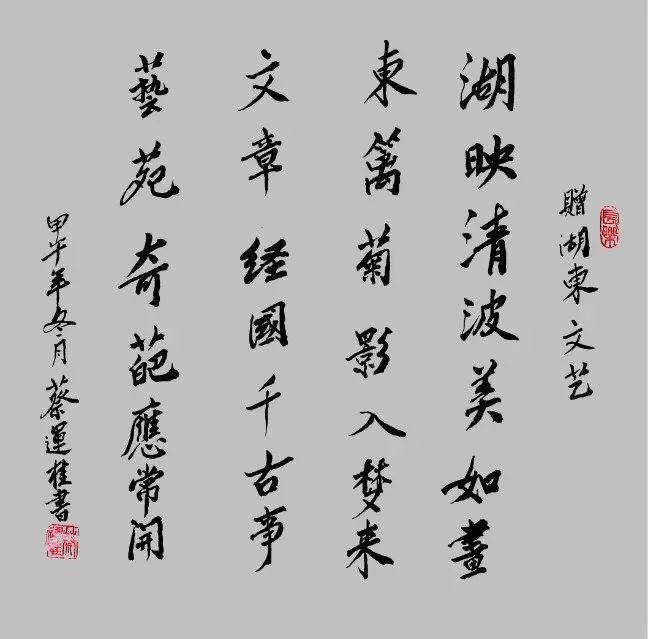 贈湖東文艺
湖映清波美如畫
東篱菊影入梦来
文章経國千古事
藝苑奇葩應常開
甲午年冬月蔡運桂書